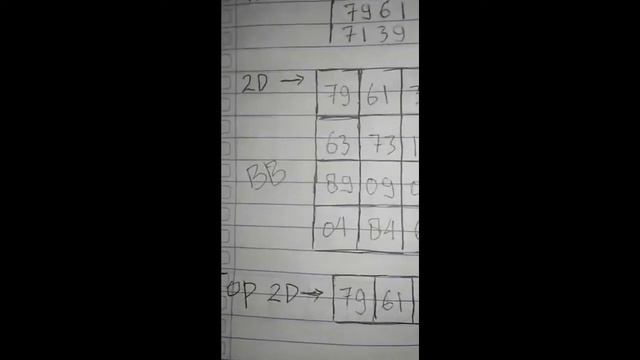 7961
7139
2D → 79 61
63 73
BB 89 09
04 84
TOP 2D → 79 61